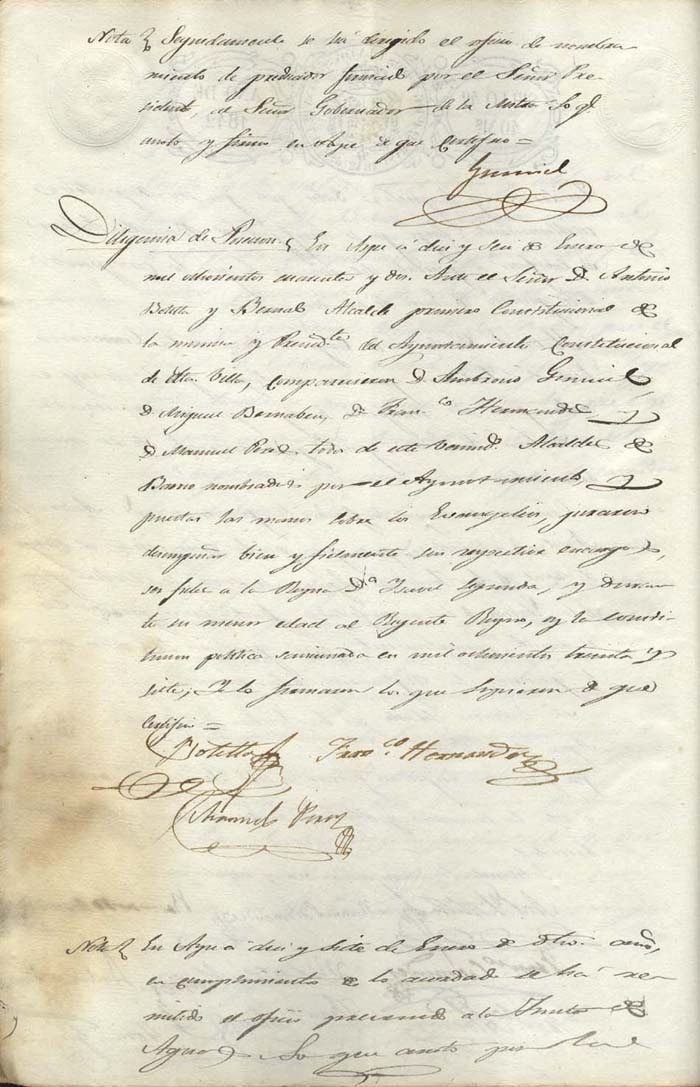 Nota Seguidamente se há dirigido el oficio de nombra
miento de predicador por el Señor Pre-
sidente, al Señor Gobernador de la Mitra. Lo q.e
anoto y firmo en Aspe de que Certifico =
Gumiel
Diligencia de En Aspe á diez y seis de Enero de
mil ochocientos cuarenta y dos. Ante el Señor D. Antonio
Botella y Bernal Alcalde primero Constitucional de
la misma y Presid.te del Ayuntamiento Constitucional
de dha. Villa, comparecieron D. Ambrosio
D. Miguel Bernabeu, D. Fran.co Hernandez y
D. Manuel Perez todos de este Alcaldes de
Barrio nombrados por el Ayuntamiento, y
puestas las manos sobre los Evangelios, juraron
desempeñar bien y fielmente sus respectivos encargos,
ser fieles a la Reyna D.a Ysavel segunda, y duran
te su menor edad al Regente Reyno, y la consti-
tucion politica sancionada en mil ochocientos treinta y
siete; Y lo firmaron los que supieron de que
Certifico =
Botella Fran.co Hernandez
Manuel Perez
Nota En Aspe á diez y siete de Enero de dho. año,
en cumplimiento de lo acordado se há re-
mitido el oficio á la Junta de
Aguas. Lo que anoto